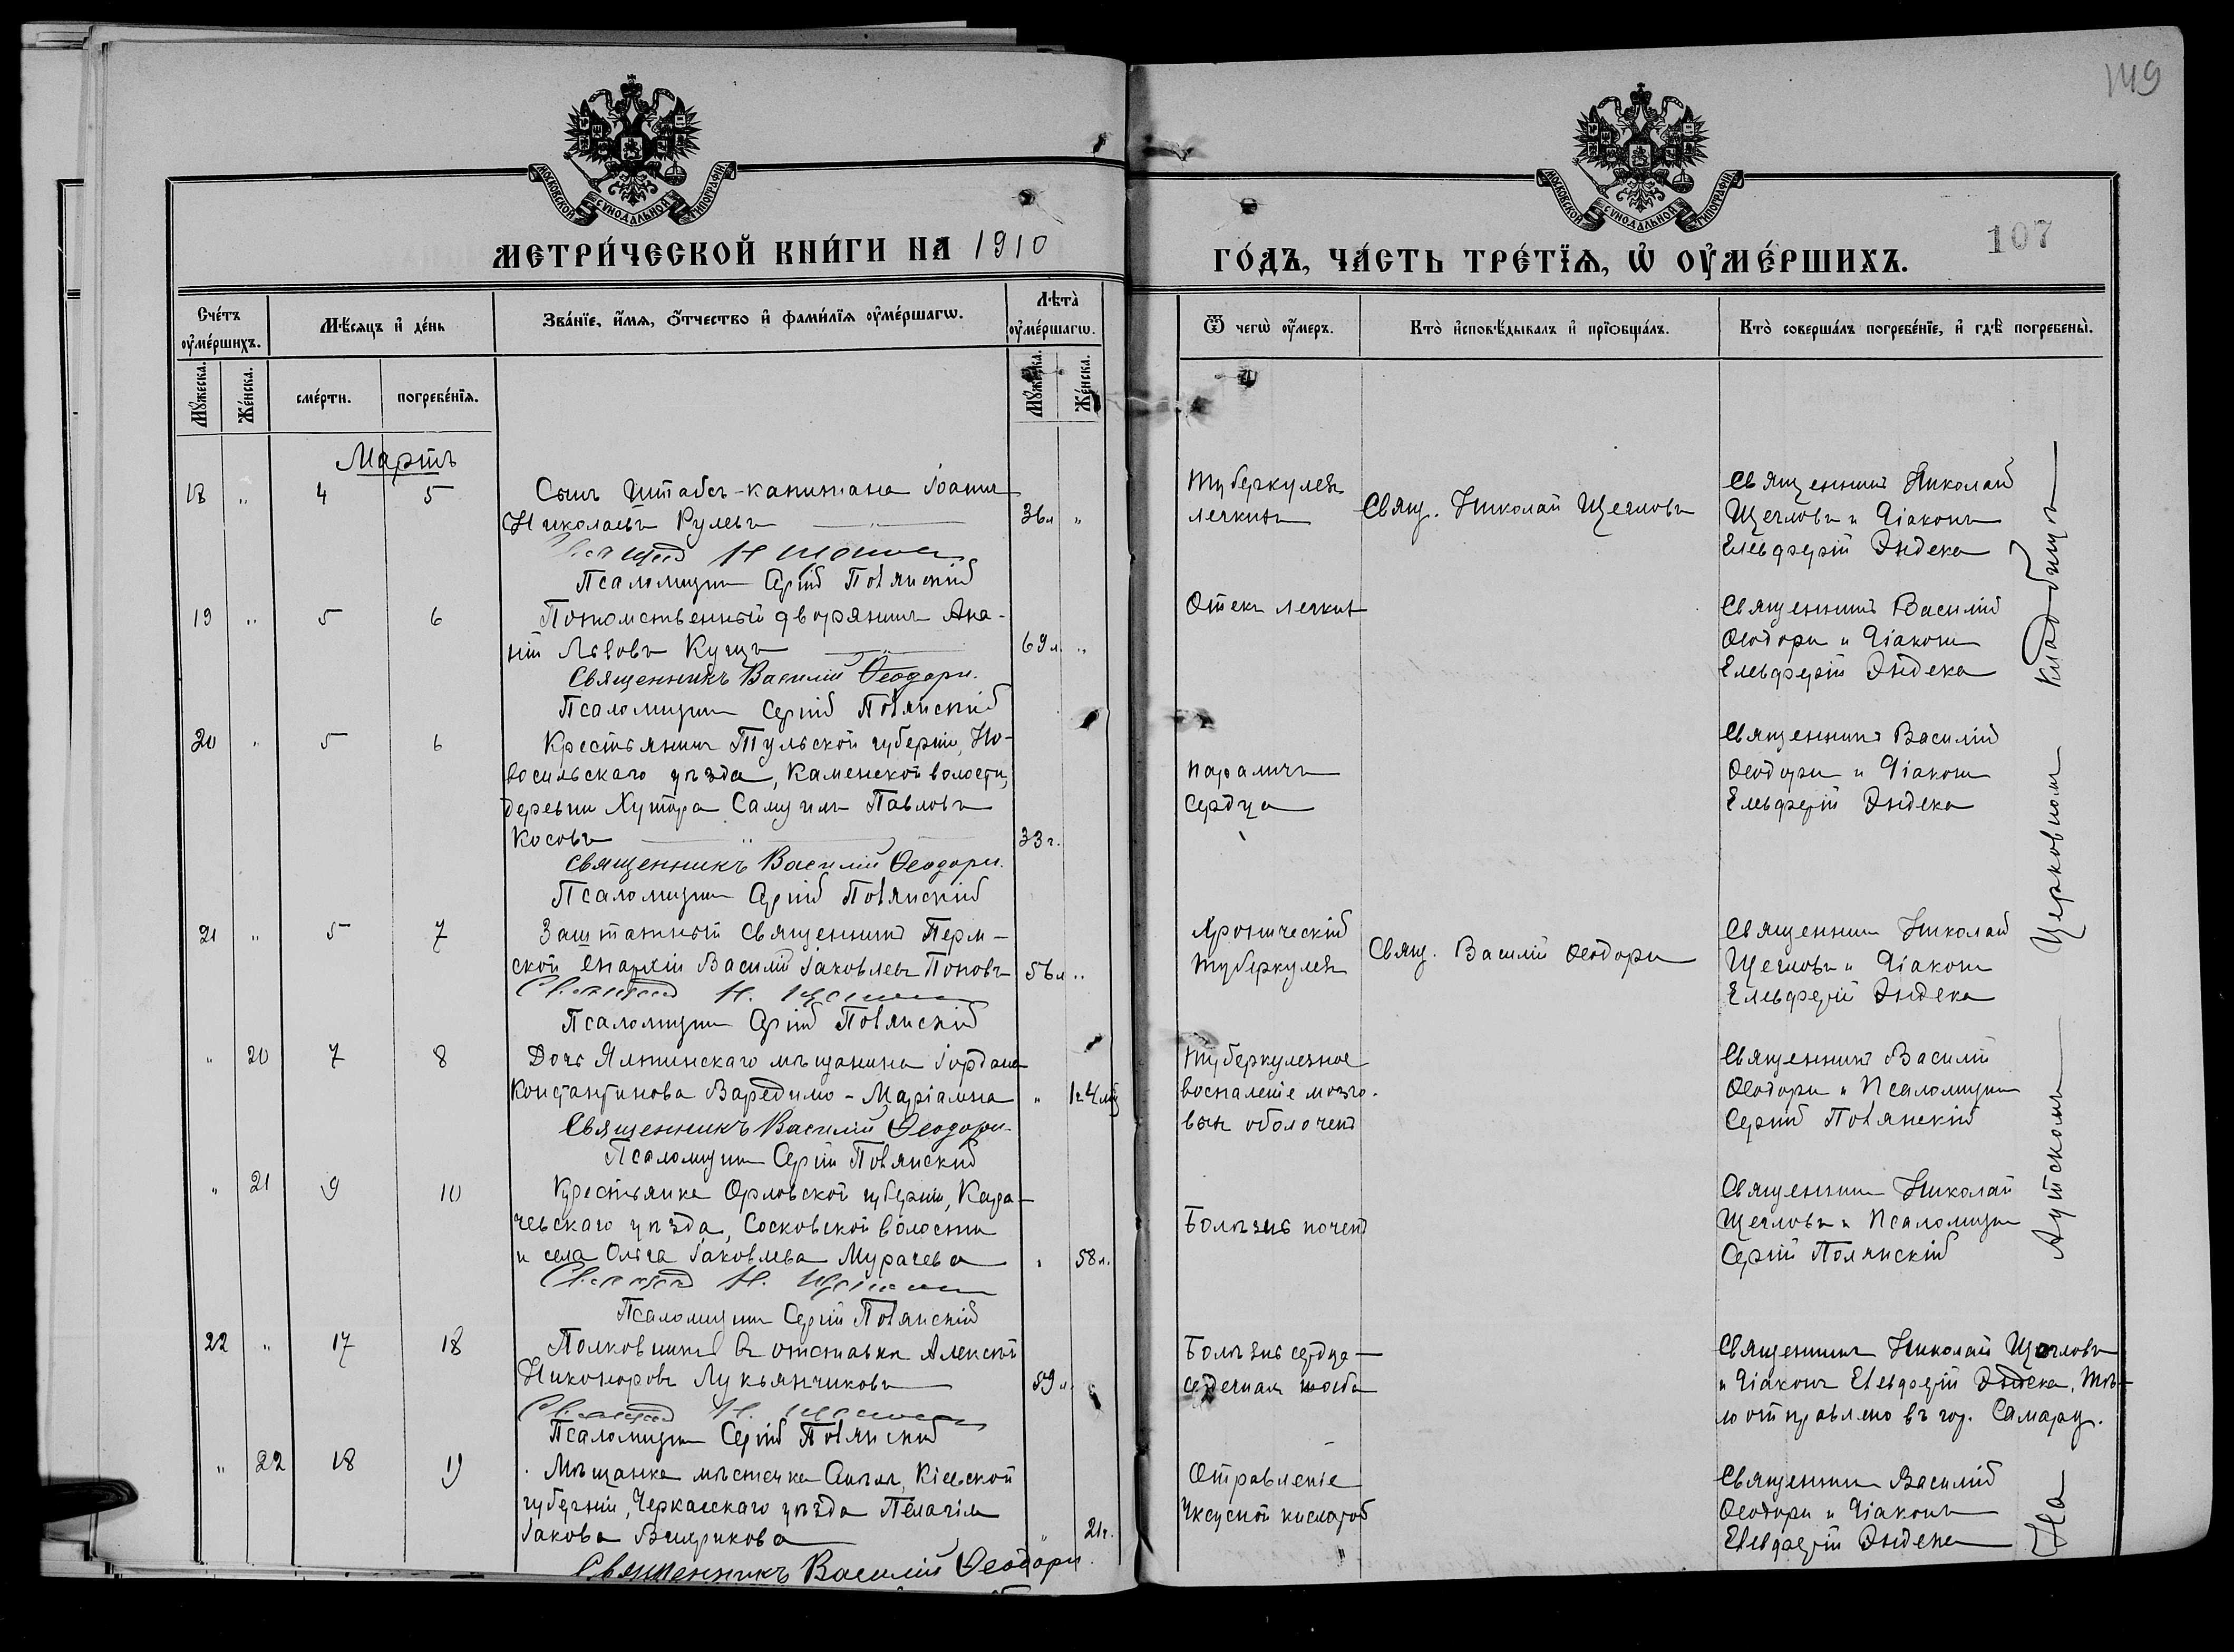 149
107
МОСКОВСКОЙ СУНОДАЛЬНОЙ ТИПОГРАФІИ
МОСКОВСКОЙ СУНОДАЛЬНОЙ ТИПОГРАФІИ
МЕТРИ́ЧЕСКОЙ КНИ́ГИ НА 1910
ГО́ДЪ, ЧА́СТЬ ТРЕ́ТЇѦ, Ѡ҆ ОУ҆МЕ́РШИХЪ.
Сче́тъ оу҆ме́ршихъ.
Мꙋ́жеска.
Же́нска.
Мѣ́сяцъ и҆ де́нь
сме́рти.
погребе́нїѧ.
Зва́нїе, и҆́мѧ, ѻ҆́тчество и҆ фами́лїѧ оу҆ме́ршагѡ.
Лѣта̀ оу҆ме́ршагѡ.
Мꙋ́жеска.
Же́нска.
Ѿ чегѡ̀ оу҆́меръ.
Кто̀ и҆сповѣ́дывалъ и҆ прїѡбща́лъ.
Кто̀ соверша́лъ погребе́нїе, и҆ гдѣ̀ погребены̀.
Мартъ
18 " 4 5 Сынъ Штабсъ-капитана Іоаннъ
Николаевъ Рулевъ — " — 36 л "
Псаломщикъ Сергій Полянскій
Туберкулезъ
легкихъ
Свящ. Николай Щегловъ
Священникъ Николай
Щегловъ и Діаконъ
Елевферій Эндека
19 " 5 6 Потомственный дворянинъ Ана-
ній Львовъ Куцъ — " — 69 л. "
Священникъ Василій Ѳеодори.
Псаломщикъ Сергій Полянскій
Отекъ легкихъ
Священникъ Василій
Ѳеодори и Діаконъ
Елевферій Эндека
20 " 5 6 Крестьянинъ Тульской губерніи, Но-
восильскаго уѣзда, Каменской волости,
деревни Хутора Самуилъ Павловъ
Косовъ — " — 33 г.
Священникъ Василій Ѳеодори.
Псаломщикъ Сергій Полянскій
параличъ
сердца
Священникъ Василій
Ѳеодори и Діаконъ
Елевферій Эндека
21 " 5 7 Заштатный священникъ Перм-
ской епархіи Василій Іаковлевъ Поповъ 56 л "
Псаломщикъ Сергій Полянскій
Хроническій
туберкулезъ
Свящ. Василій Ѳеодори
Священникъ Николай
Щегловъ и Діаконъ
Елевферій Эндека
" 20 7 8 Дочь Ялтинскаго мѣщанина Іордана
Константинова Варедимо - Маріамна " 1 г. 4 мѣс
Священникъ Василій Ѳеодори
Псаломщикъ Сергій Полянскій
туберкулезное
воспаленіе мозго-
выхъ оболочекъ
Священникъ Василій
Ѳеодори и Псаломщикъ
Сергій Полянскій
" 21 9 10 Крестьянка Орловской губерніи, Кара-
чевскаго уѣзда, Сосковской волости
и села Ольга Іаковлева Мурачева " 58 л.
Псаломщикъ Сергій Полянскій
Болѣзнь почекъ
Священникъ Николай
Щегловъ и Псаломщикъ
Сергій Полянскій
22 " 17 18 Полковникъ въ отставкѣ Алексѣй
Никоноровъ Лукьянчиковъ 59 л.
Псаломщикъ Сергій Полянскій
Болѣзнь сердца —
сердечная
Священникъ Николай Щегловъ
и Діаконъ Елевферій Эндека, Тѣ-
ло отправлено въ гор. Самару.
" 22 18 19 Мѣщанка мѣстечка Смѣла, Кіевской
губерніи, Черкасскаго уѣзда Пелагія
Іакова " 21 г.
Священникъ Василій Ѳеодори.
Отравленіе
Уксусной кислотой
Священникъ Василій
Ѳеодори и Діаконъ
Елевферій Эндека
На Аутскомъ Церковномъ кладбищѣ